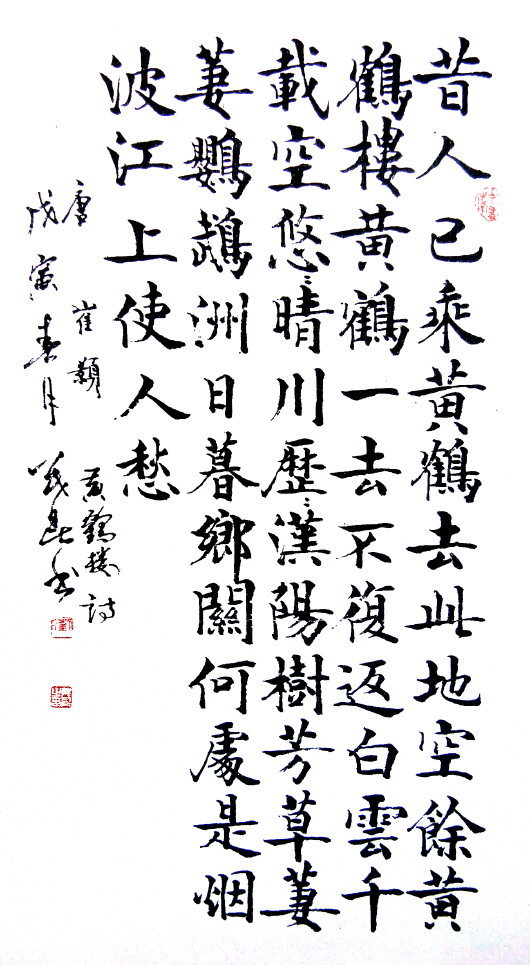 昔人已乘黄鶴去此地空餘黄
鶴樓黄鶴一去不復返白雲千
載空悠〻晴川歷〻漢陽樹芳草萋
萋鸚鵡洲日暮鄉關何處是烟
波江上使人愁
唐崔顥黄鶴樓詩
戊寅春月